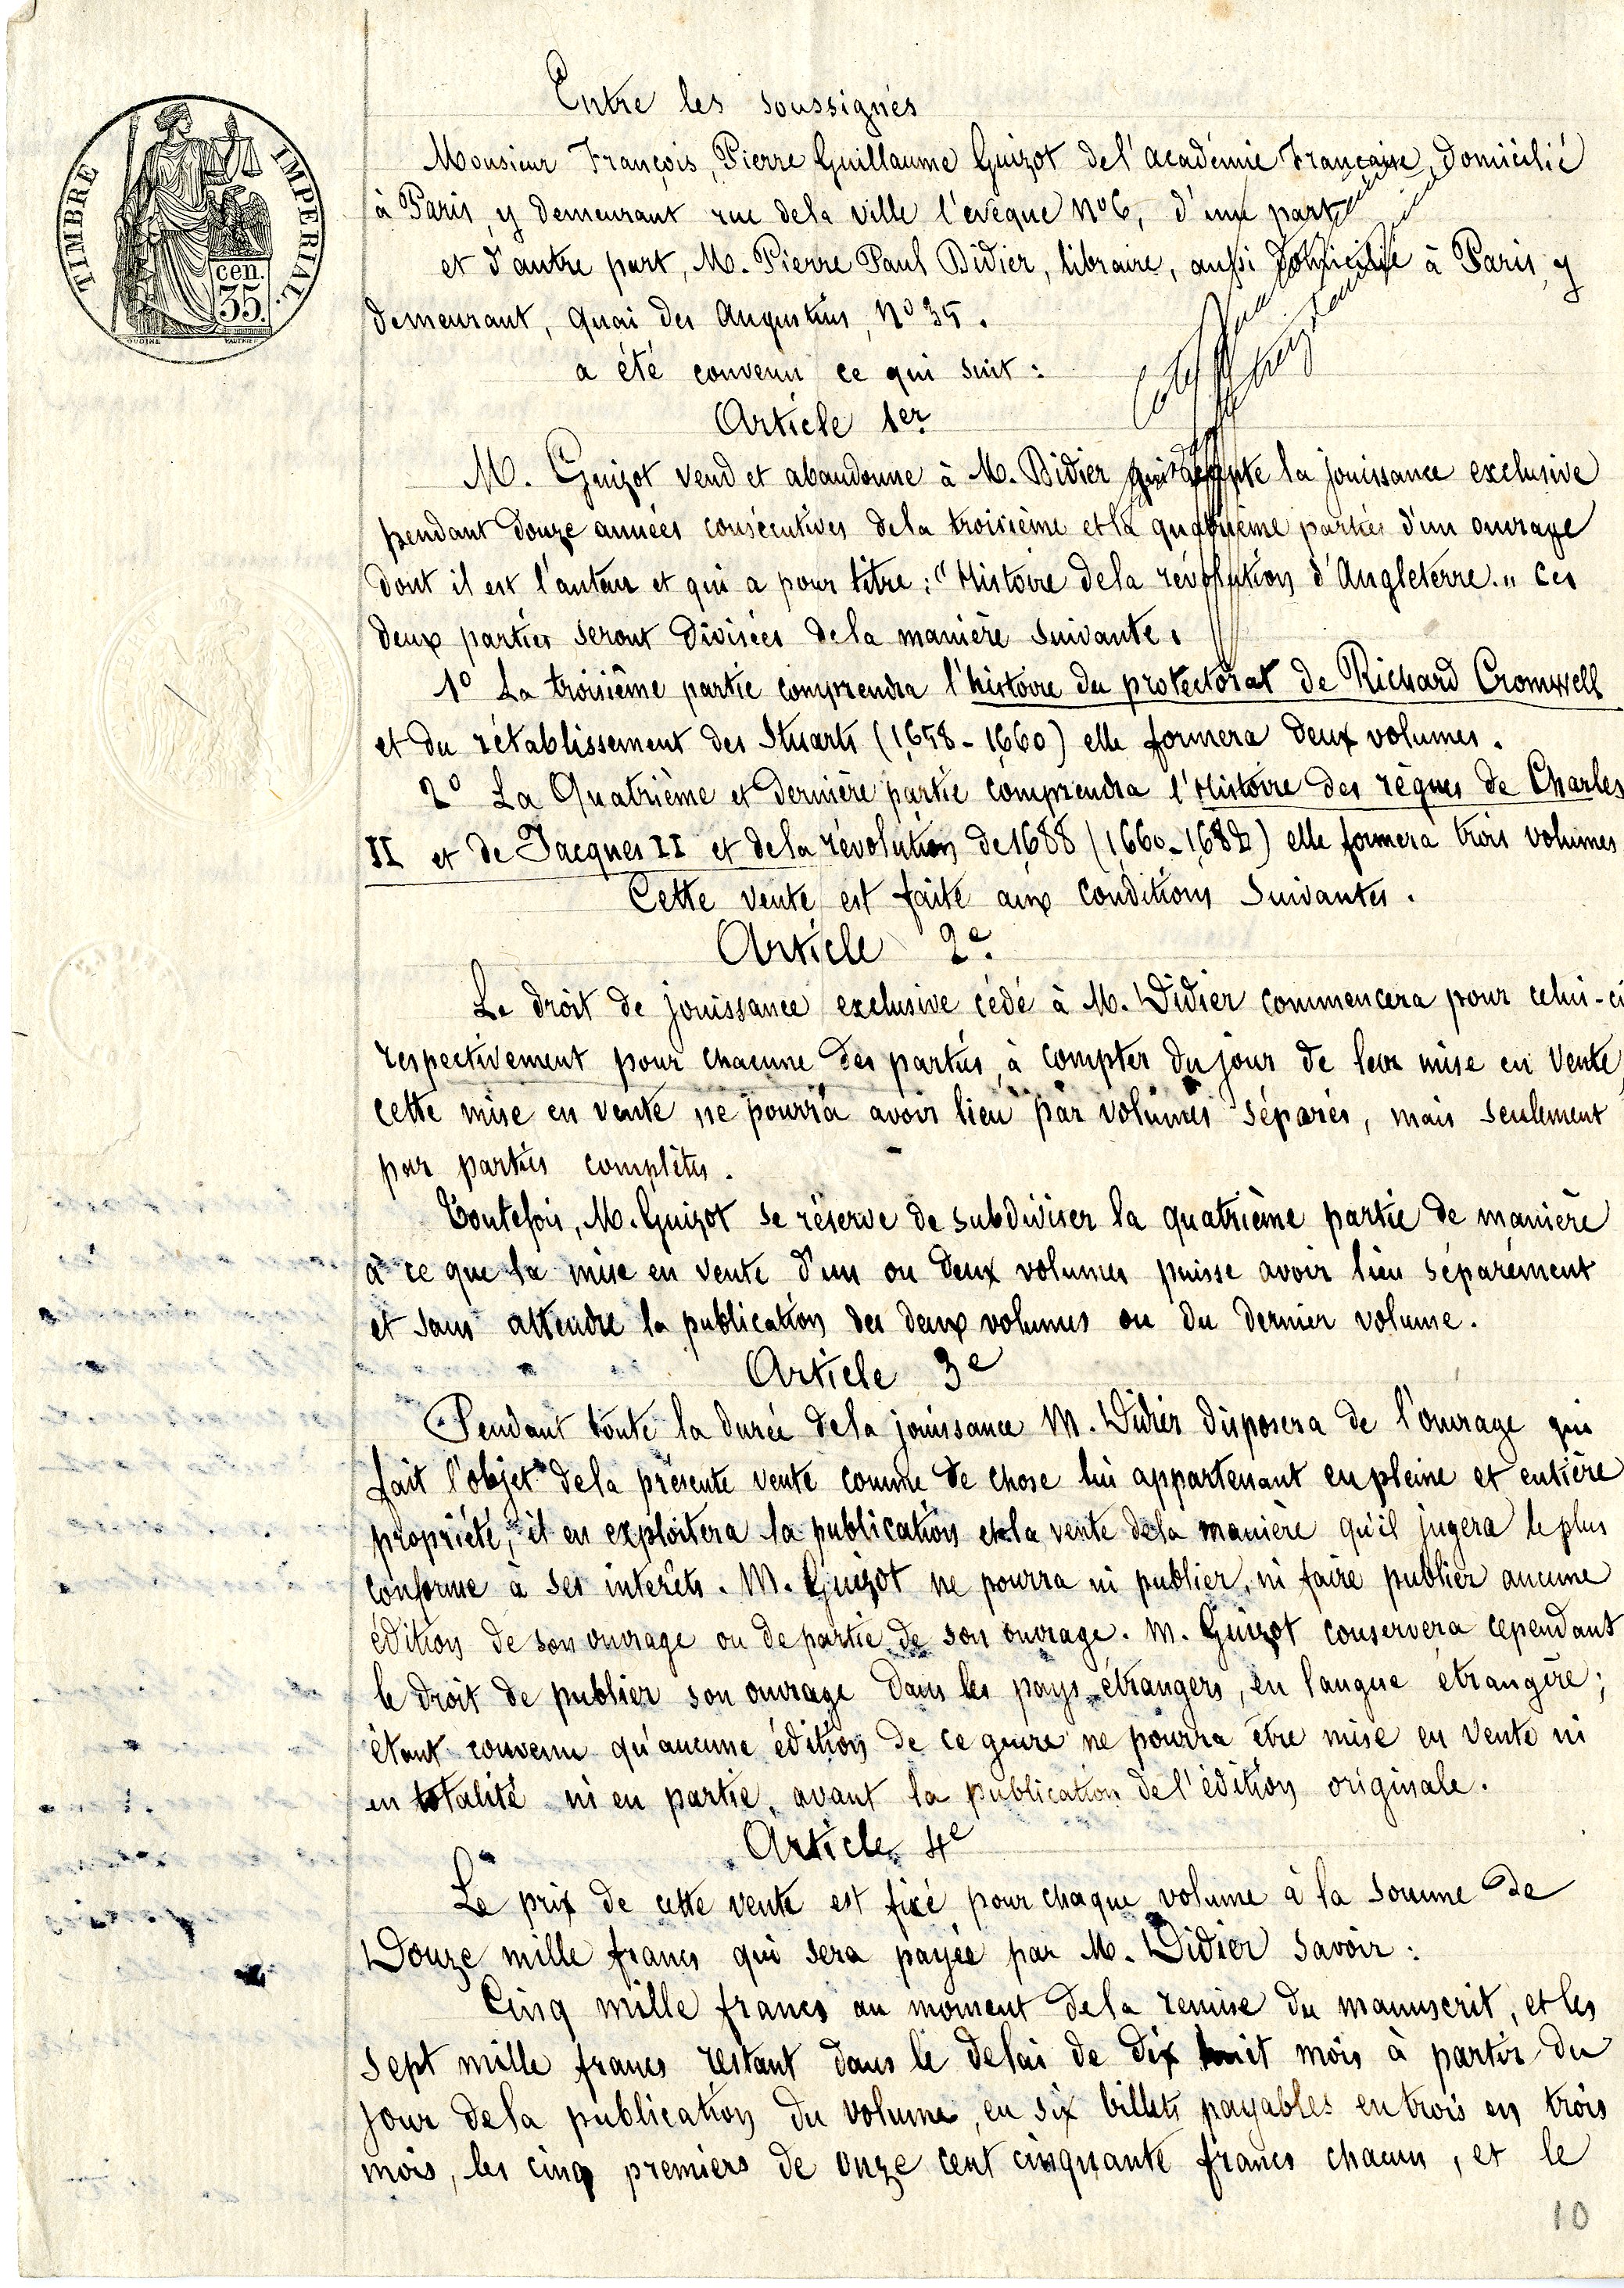 Entre les soussignés
Monsieur François, Pierre Guillaume Guizot de l'académie Française, domicilié
à Paris, y demeurant rue de la ville l'evêque No 6, d'une part
et d'autre part, M. Pierre Paul Didier, libraire, aussi domicilié à Paris, y
demeurant, quai des Augustins, No 35.
a été convenu ce qui suit :
Article 1er
M. Guizot vend et abandonne à M. Didier qui accepte la jouissance exclusive
pendant douze années consécutives de la troisième et la quatrième parties d'un ouvrage
dont il est l'auteur et qui a pour titre : "Histoire de la révolution d'Angleterre." Ces
deux parties seront divisées de la manière suivante.
1o La troisième partie comprendra l'histoire du protectorat de Richard Cromwell
et du rétablissement des Stuarts (1658-1660) elle formera deux volumes.
2o La Quatrième et dernière partie comprendra l'Histoire des règnes de Charles
II et de Jacques II et de la révolution de 1688 (1660-1688) elle formera trois volumes
Cette vente est faite aux conditions suivantes.
Article 2e
Le droit de jouissance exclusive cédé à M. Didier commencera pour celui-ci
respectivement pour chacune des parties, à compter du jour de leur mise en vente,
cette mise en vente ne pourra avoir lieu par volumes séparés, mais seulement
par parties complètes.
Toutefois, M. Guizot se réserve de subdiviser la quatrième partie de manière
à ce que la mise en vente d'un ou deux volumes puisse avoir lieu séparément
et sans attendre la publication des deux volumes ou du dernier volume.
Article 3e
Pendant toute la durée de la jouissance M. Didier disposera de l'ouvrage qui
fait l'objet de la présente vente comme de chose lui appartenant en pleine et entière
propriété, il en exploitera la publication et la vente de la manière qu'il jugera le plus
conforme à ses interêts. M. Guizot ne pourra ni publier, ni faire publier aucune
édition de son ouvrage ou de partie de son ouvrage. M. Guizot conservera cependant
le droit de publier son ouvrage dans les pays étrangers, en langue étrangère ;
étant convenu qu'aucune édition de ce genre ne pourra être mise en vente ni
en totalité ni en partie, avant la publication de l'édition originale.
Article 4e
Le prix de cette vente est fixé pour chaque volume à la somme de
Douze mille francs qui sera payée par M. Didier savoir :
Cinq mille francs au moment de la remise du manuscrit, et les
sept mille francs restant dans le delai de dix huit mois à partir du
jour de la publication du volume, en six billets payables en trois en trois
mois, les cinq premiers de onze cent cinquante francs chacun, et le
10
TIMBRE IMPERIAL.
cen.
35.